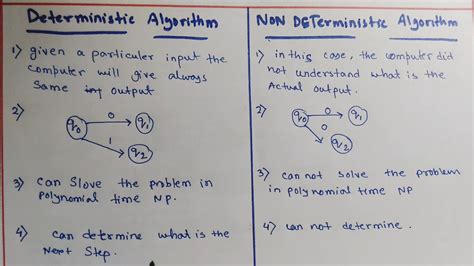 Deterministic Algorithm
1) given a particuler input the
computer will give always
same output
2)
q0 0 q1
1 q2
3) can Slove the problem in
polynomial time NP.
4) can determine what is the
Next Step.
NON DETerministic Algorithm
1) in this case, the computer did
not understand what is the
Actual output.
2)
q0 0 q1
0 q2
3) can not solve the problem
in polynomial time NP
4) can not determine.